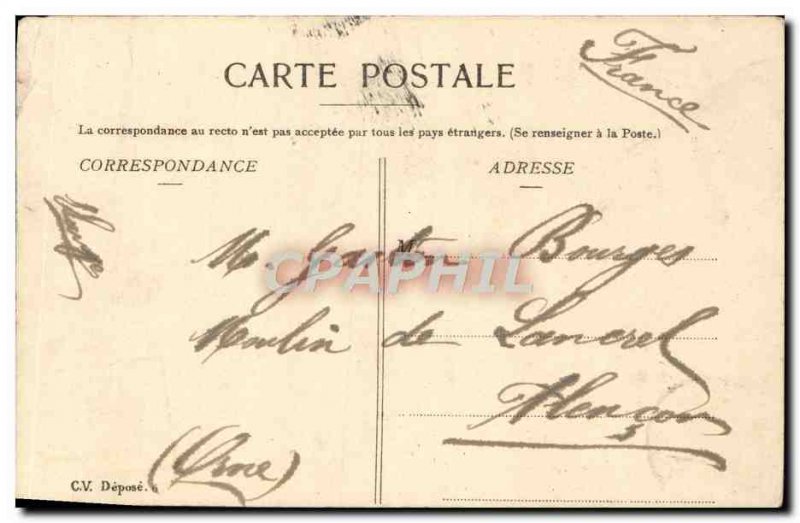 France
CARTE POSTALE
La correspondance au recto n'est pas acceptée par tous les pays étrangers. (Se renseigner à la Poste.)
CORRESPONDANCE
ADRESSE
M. Gaston Bourges
M
CPAPHIL
Moulin de Lancrel
Alençon
(Orne)
C.V. Déposé.